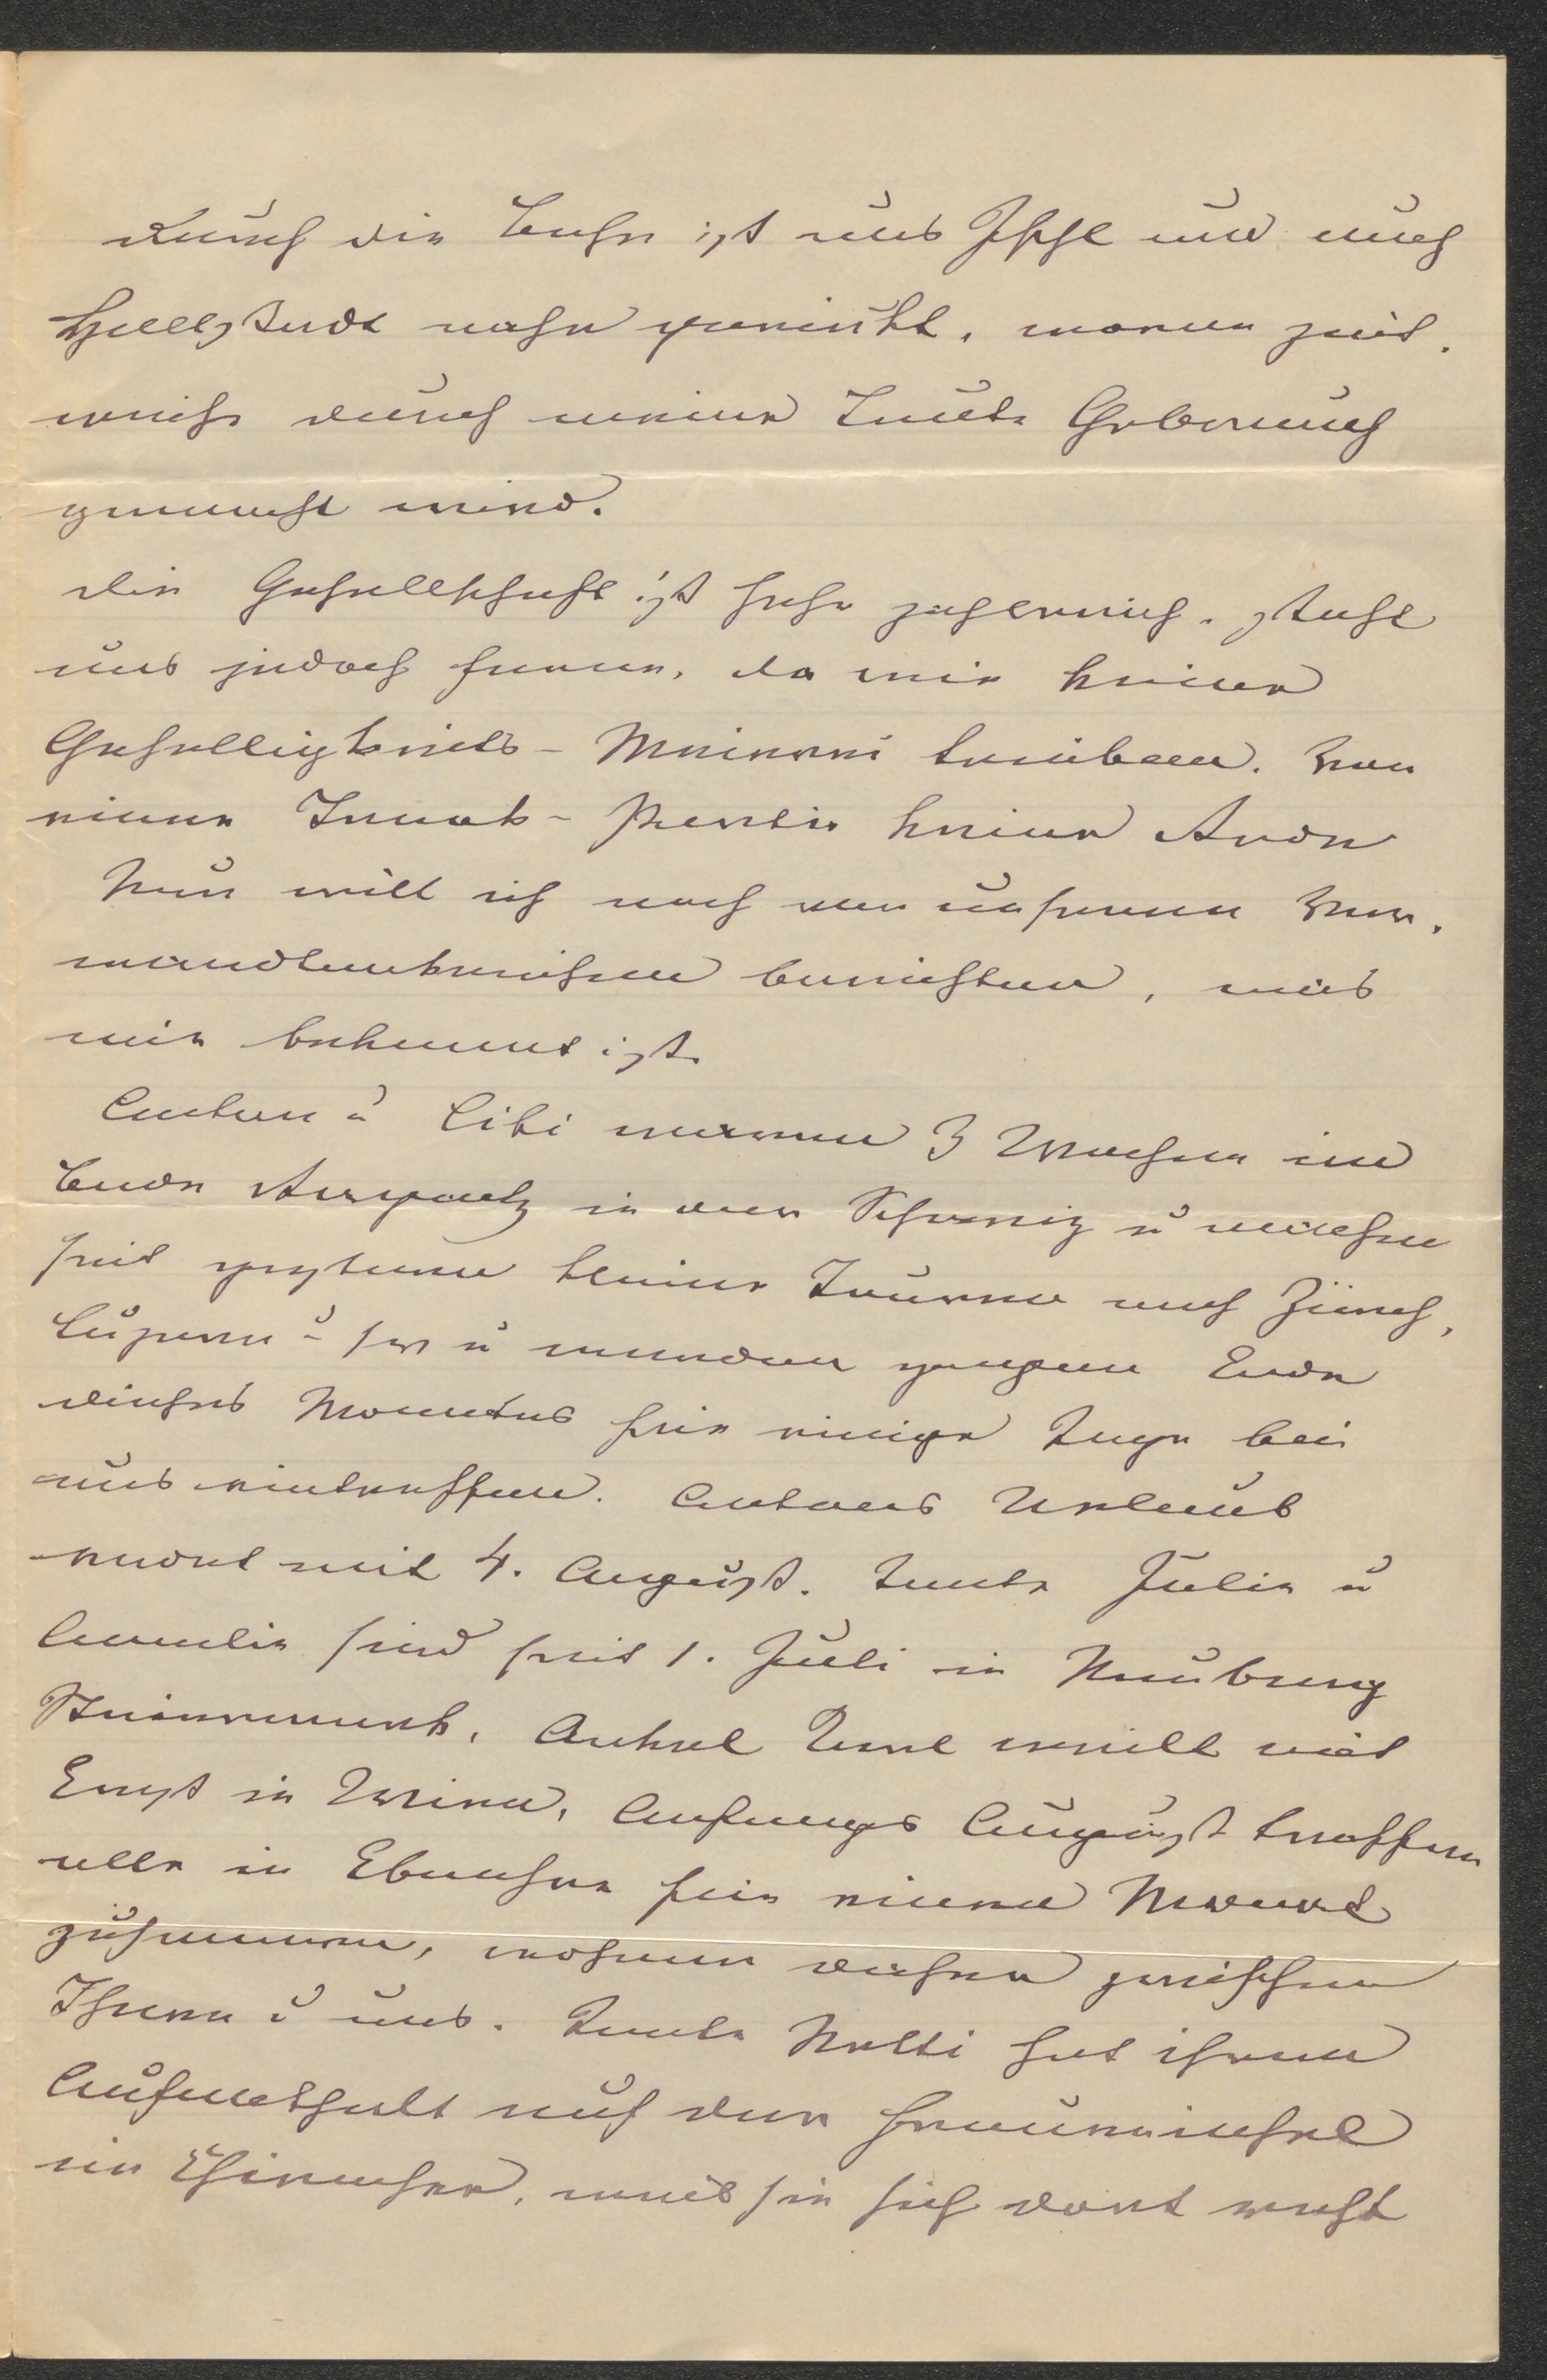 Durch die Bahn ist uns Ischl und auch
Hallstadt nahe gerückt, wovon zeit-
weise durch meine Leute Gebrauch
gemacht wird.
Die Gesellschaft ist sehr zahlreich, steht
uns jedoch ferne, da wir keine
Geselligkeits-Meierei treiben. Von
einer Tarock-Partie keine Rede
Nun will ich noch von unseren Ver-
wandtenkreisen berichten, was
mir bekannt ist.
Anton u Bibi waren 3 Wochen im
Bade Ragatz in der Schweiz u machen
seit gestern kleine Touren nach Zürich,
Luzern u u werden gegen Ende
dieses Monates hier einige Tage bei
uns eintreffen. Antons Urlaub
endet mit 4. August. Tante Julie u
Amalie sind seit 1. Juli in Neuberg
Steiermark, Onkel Carl weilt mit
Ernst in Wien, Anfangs August treffen
alle in Ebensee für einen Monat
zusammen, wohnen daher zwischen
Ihnen u uns. Tante Netti hat ihren
Aufenthalt auf der Fraueninsel
im Chiemsee, muß sie sich dort recht